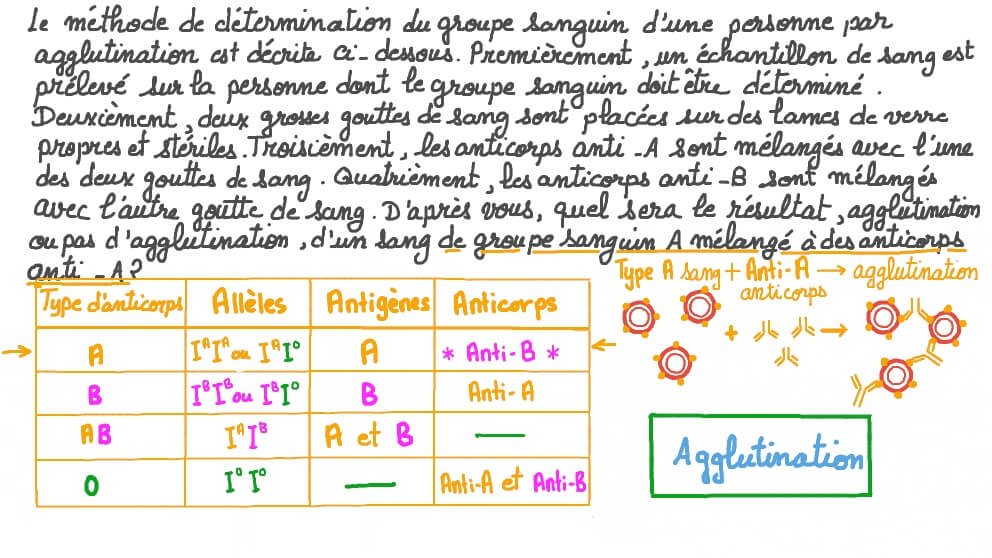 Le méthode de détermination du groupe sanguin d'une personne par
agglutination est décrite ci-dessous. Premièrement, un échantillon de sang est
prélevé sur la personne dont le groupe sanguin doit être déterminé.
Deuxièment, deux grosses gouttes de sang sont placées sur des lames de verre
propres et stériles. Troisièment, les anticorps anti-A sont mélangés avec l'une
des deux gouttes de sang. Quatrièment, les anticorps anti-B sont mélangés
avec l'autre goutte de sang. D'après vous, quel sera le résultat, agglutination
ou pas d'agglutination, d'un sang de groupe sanguin A mélangé à des anticorps
anti-A?
Type A sang + Anti-A → agglutination
anticorps
Type d'anticorps Allèles Antigènes Anticorps
→ A IᴬIᴬ ou IᴬIᴼ A * Anti-B * ←
B IᴮIᴮ ou IᴮIᴼ B Anti-A
AB IᴬIᴮ A et B —
O IᴼIᴼ — Anti-A et Anti-B
+ →
Agglutination